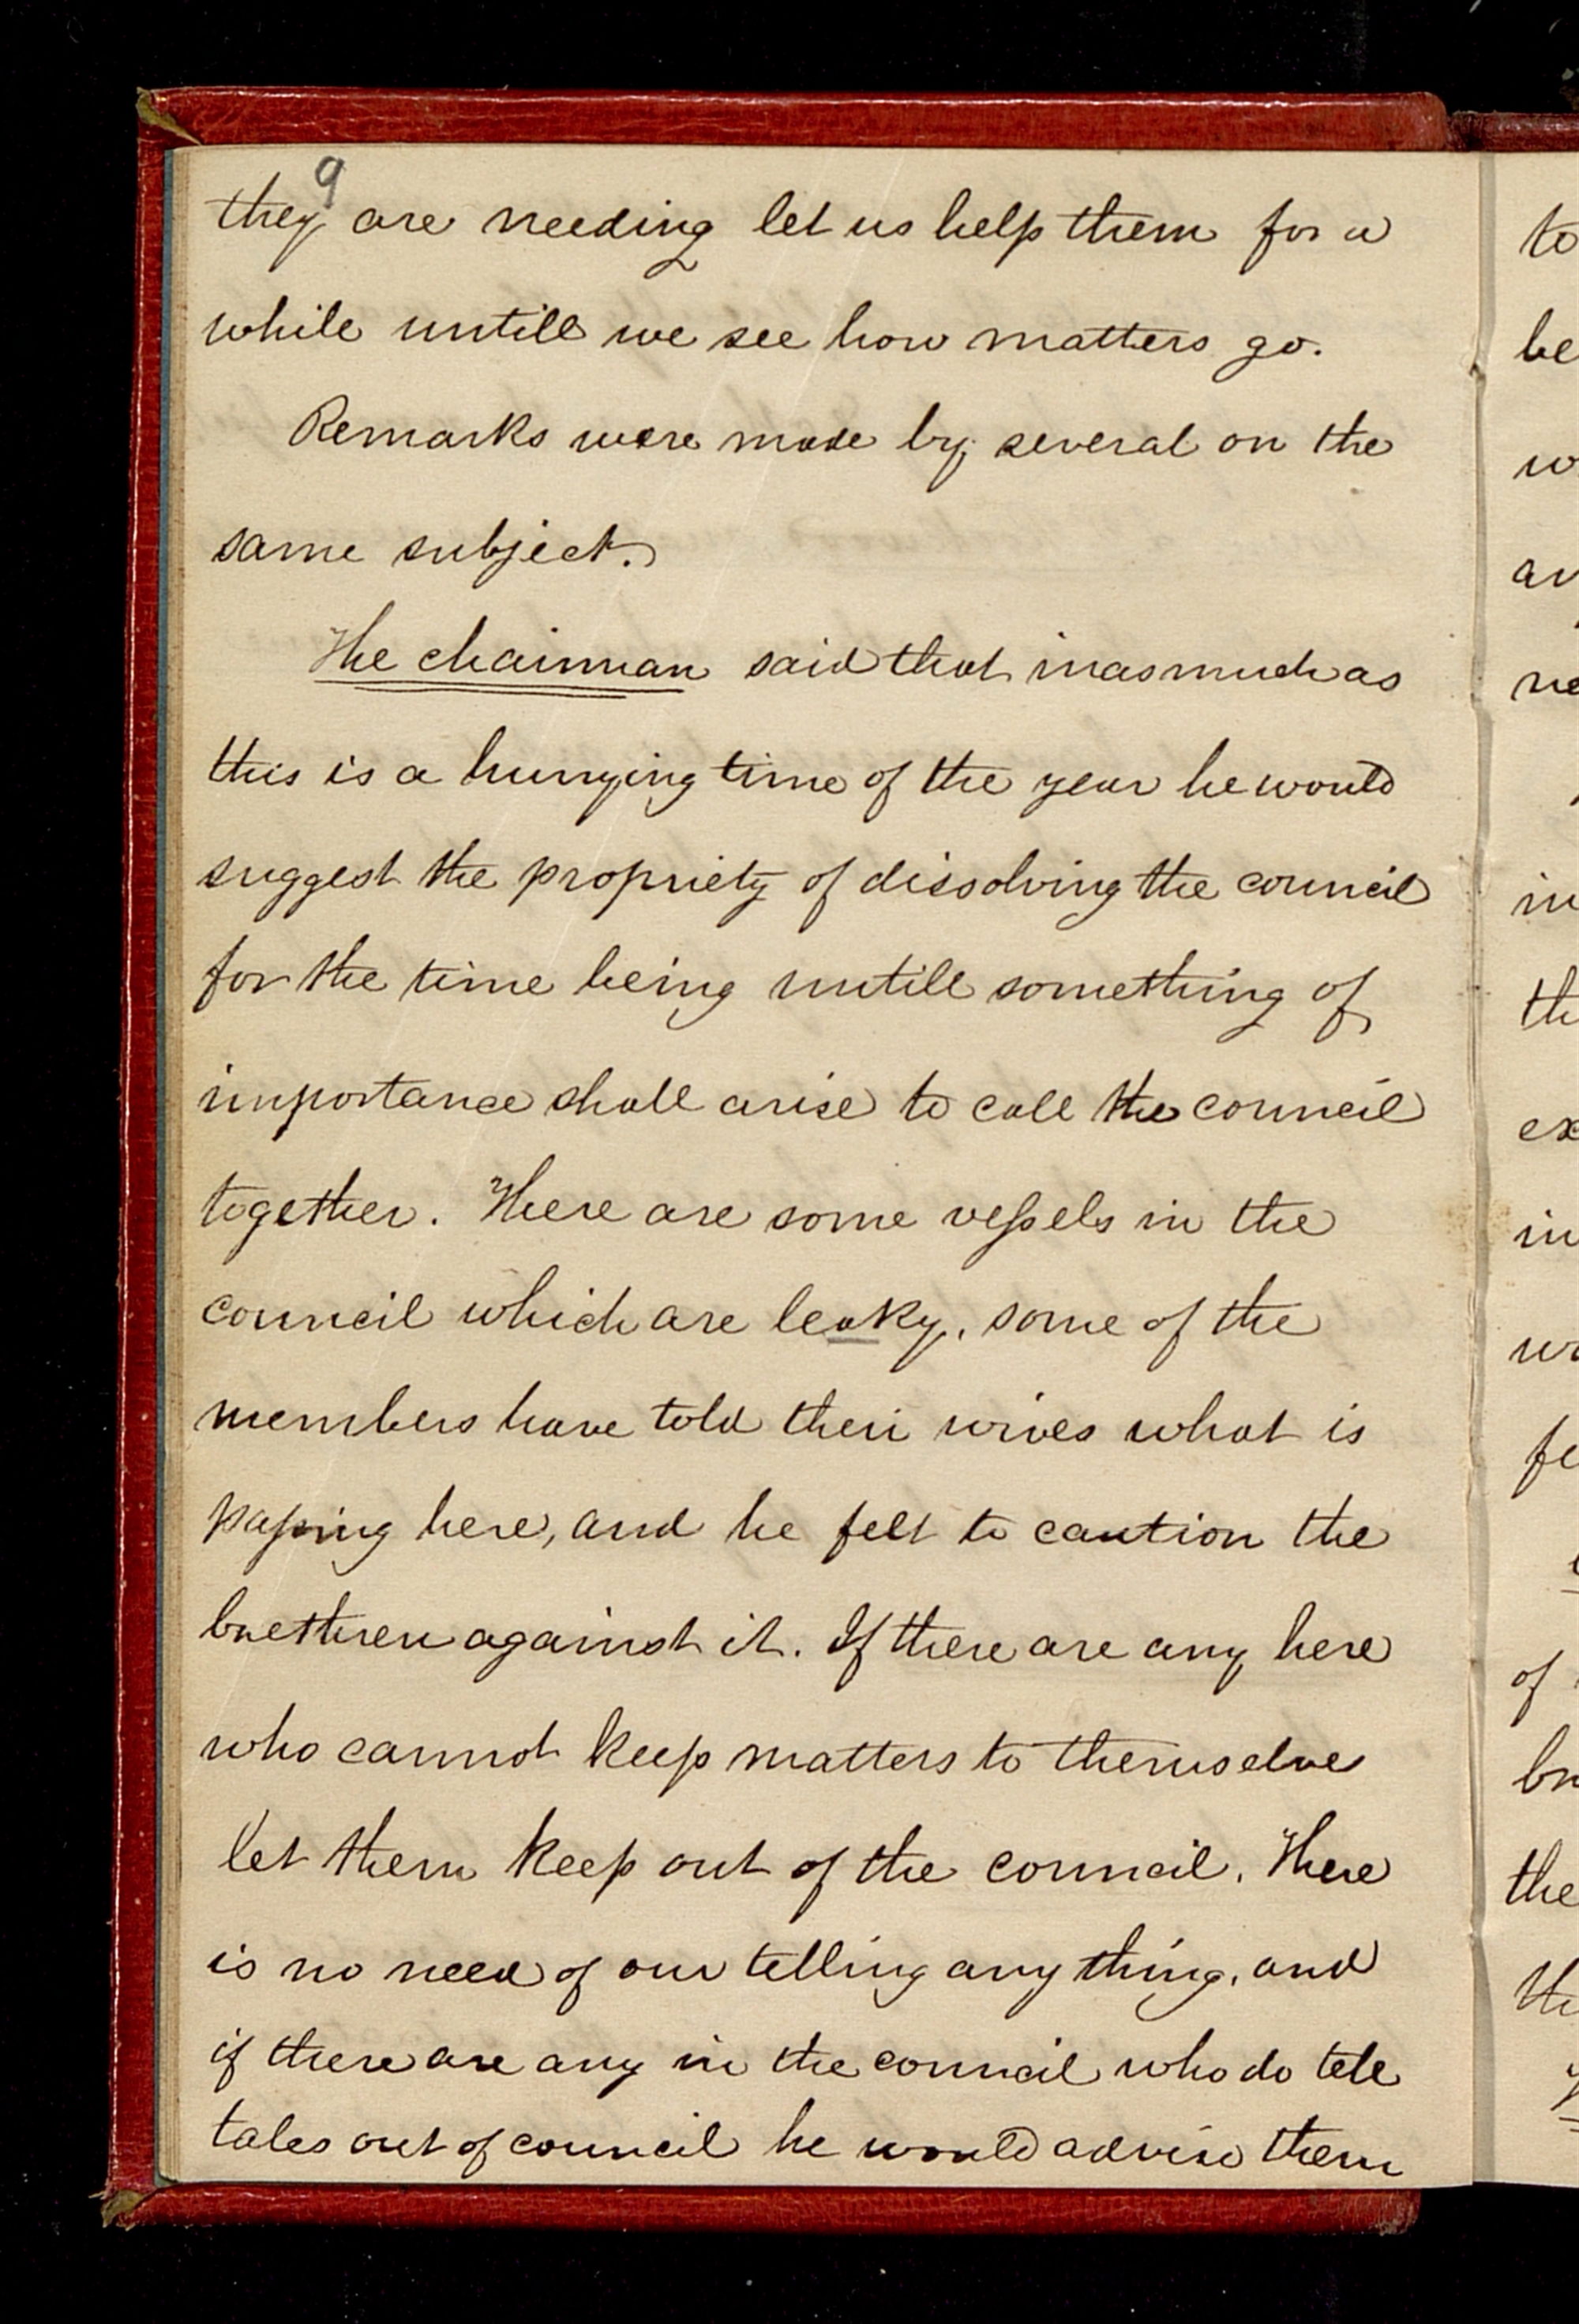 9
they are needing let us help them for a
while untill we see how matters go.
Remarks were made by several on the
same subject.
The chairman said that inasmuch as
this is a hurrying time of the year he would
suggest the propriety of dissolving the council
for the time being untill something of
importance shall arise to call the council
together. There are some vessels in the
council which are leaky, some of the
members have told their wives what is
passing here, and he felt to caution the
brethren against it. If there are any here
who cannot keep matters to themselves
let them keep out of the council. There
is no need of our telling any thing, and
if there are any in the council who do tell
tales out of council he would advise them
to
be
w
ne
in
th
ex
in
fe
of
the